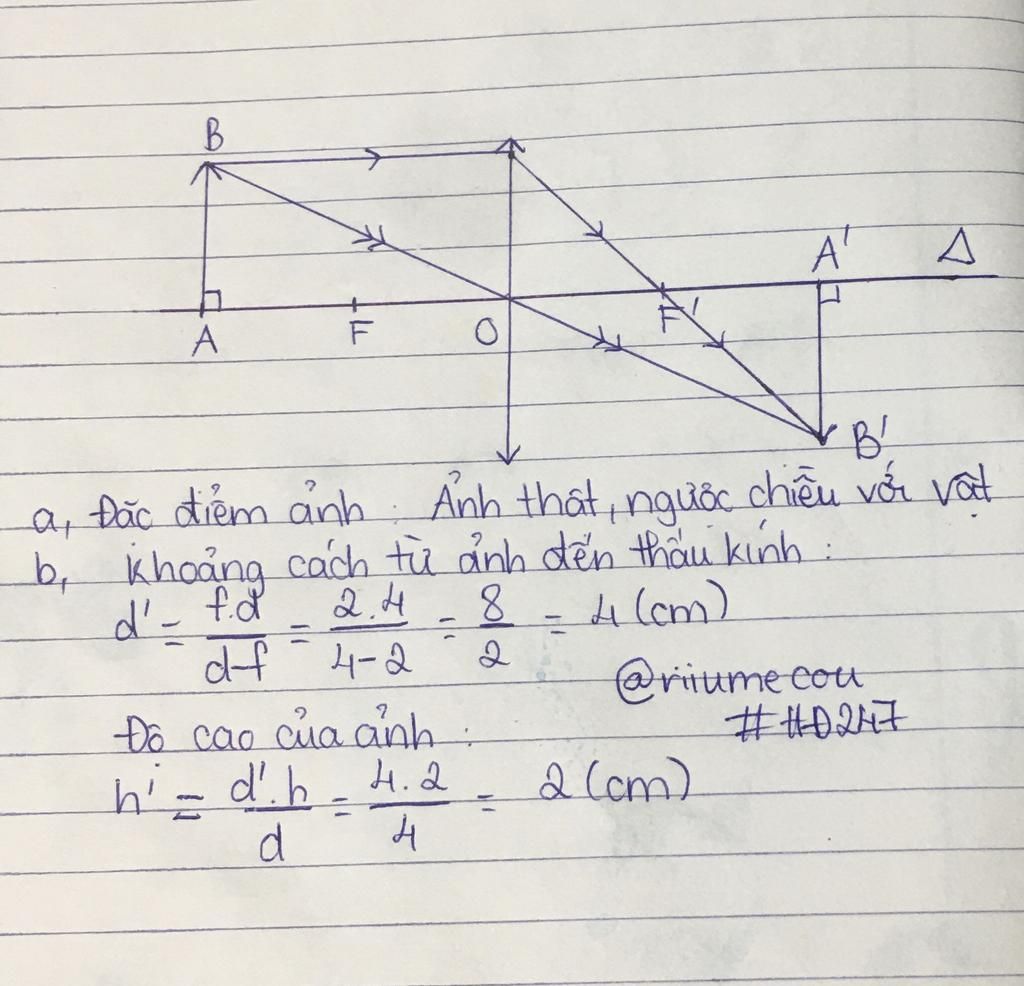 B
A'
Δ
A
F
O
F'
B'
a, Đặc điểm ảnh : Ảnh thật, ngược chiều với vật
b, Khoảng cách từ ảnh đến thấu kính :
d' = f.d / d-f = 2.4 / 4-2 = 8 / 2 = 4 (cm)
@riiumecou
##D247
Độ cao của ảnh :
h' = d'.h / d = 4.2 / 4 = 2 (cm)